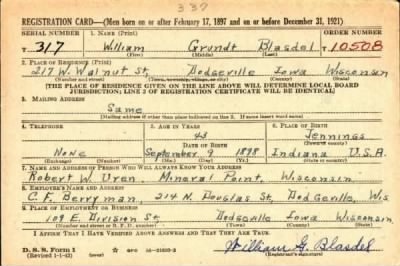 337
REGISTRATION CARD—(Men born on or after February 17, 1897 and on or before December 31, 1921)
SERIAL NUMBER 1. NAME (Print) ORDER NUMBER
T 317 William Grundt Blasdel T 10508
(First) (Middle) (Last)
2. PLACE OF RESIDENCE (Print)
217 W. Walnut St. Dodgeville Iowa Wisconsin
(Number and street) (Town, township, village, or city) (County) (State)
[THE PLACE OF RESIDENCE GIVEN ON THE LINE ABOVE WILL DETERMINE LOCAL BOARD
JURISDICTION; LINE 2 OF REGISTRATION CERTIFICATE WILL BE IDENTICAL]
3. MAILING ADDRESS
Same
[Mailing address if other than place indicated on line 2. If same insert word same]
4. TELEPHONE 5. AGE IN YEARS 6. PLACE OF BIRTH
43 Jennings
DATE OF BIRTH (Town or county)
None September 9 1898 Indiana U.S.A.
(Exchange) (Number) (Mo.) (Day) (Yr.) (State or country)
7. NAME AND ADDRESS OF PERSON WHO WILL ALWAYS KNOW YOUR ADDRESS
Robert W. Uren, Mineral Point, Wisconsin
8. EMPLOYER'S NAME AND ADDRESS
C. F. Berryman, 214 N. Douglas St, Dodgeville, Wis
9. PLACE OF EMPLOYMENT OR BUSINESS
109 E. Division St, Dodgeville Iowa Wisconsin
(Number and street or R. F. D. number) (Town) (County) (State)
I AFFIRM THAT I HAVE VERIFIED ABOVE ANSWERS AND THAT THEY ARE TRUE.
D. S. S. Form 1
(Revised 1-1-42) (over) 16—21630-2 William G. Blasdel